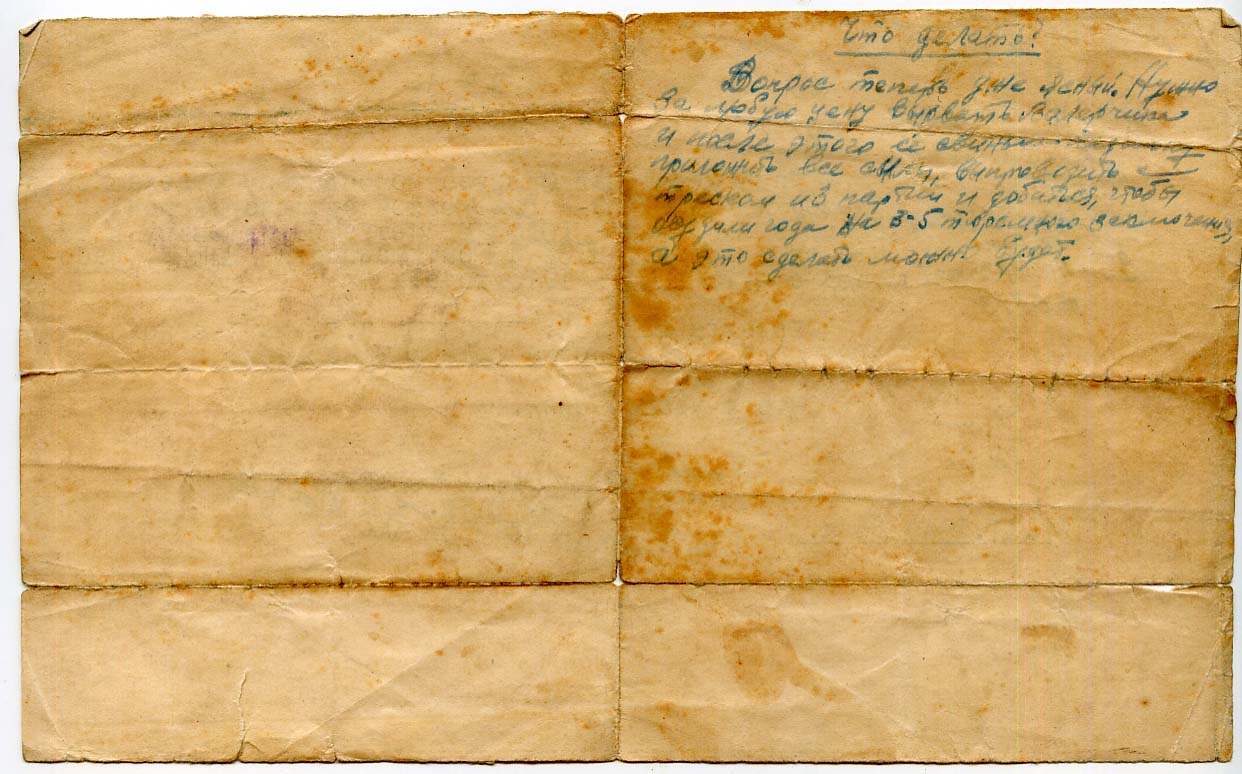 Что делать?
Вопрос теперь уже ясный. Нужно
за любую цену вырвать
и после этого ее
приложить все силы, выпроводить с
треском из партии и добиться, чтобы
года на 3-5 тюремного заключения,
а это сделать можно будет.